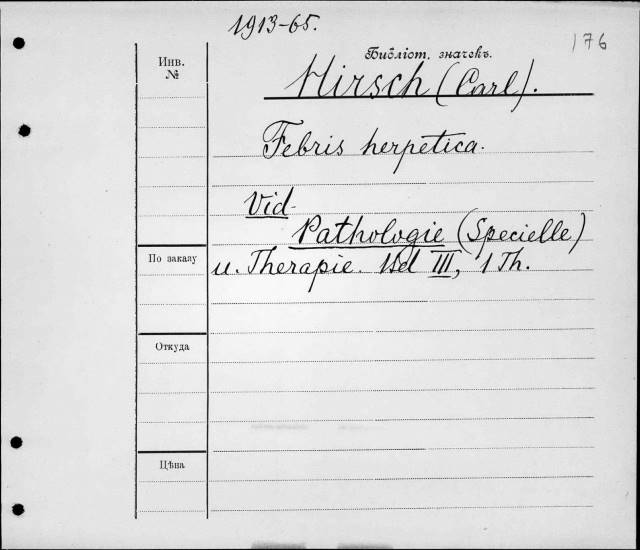 1913-65.
176
Инв.
№
Библіот. значекъ.
Hirsch (Carl).
Febris herpetica.
Vid
Pathologie (Specielle)
По заказу
u. Therapie. Bd III, 1 Th.
Откуда
Цѣна